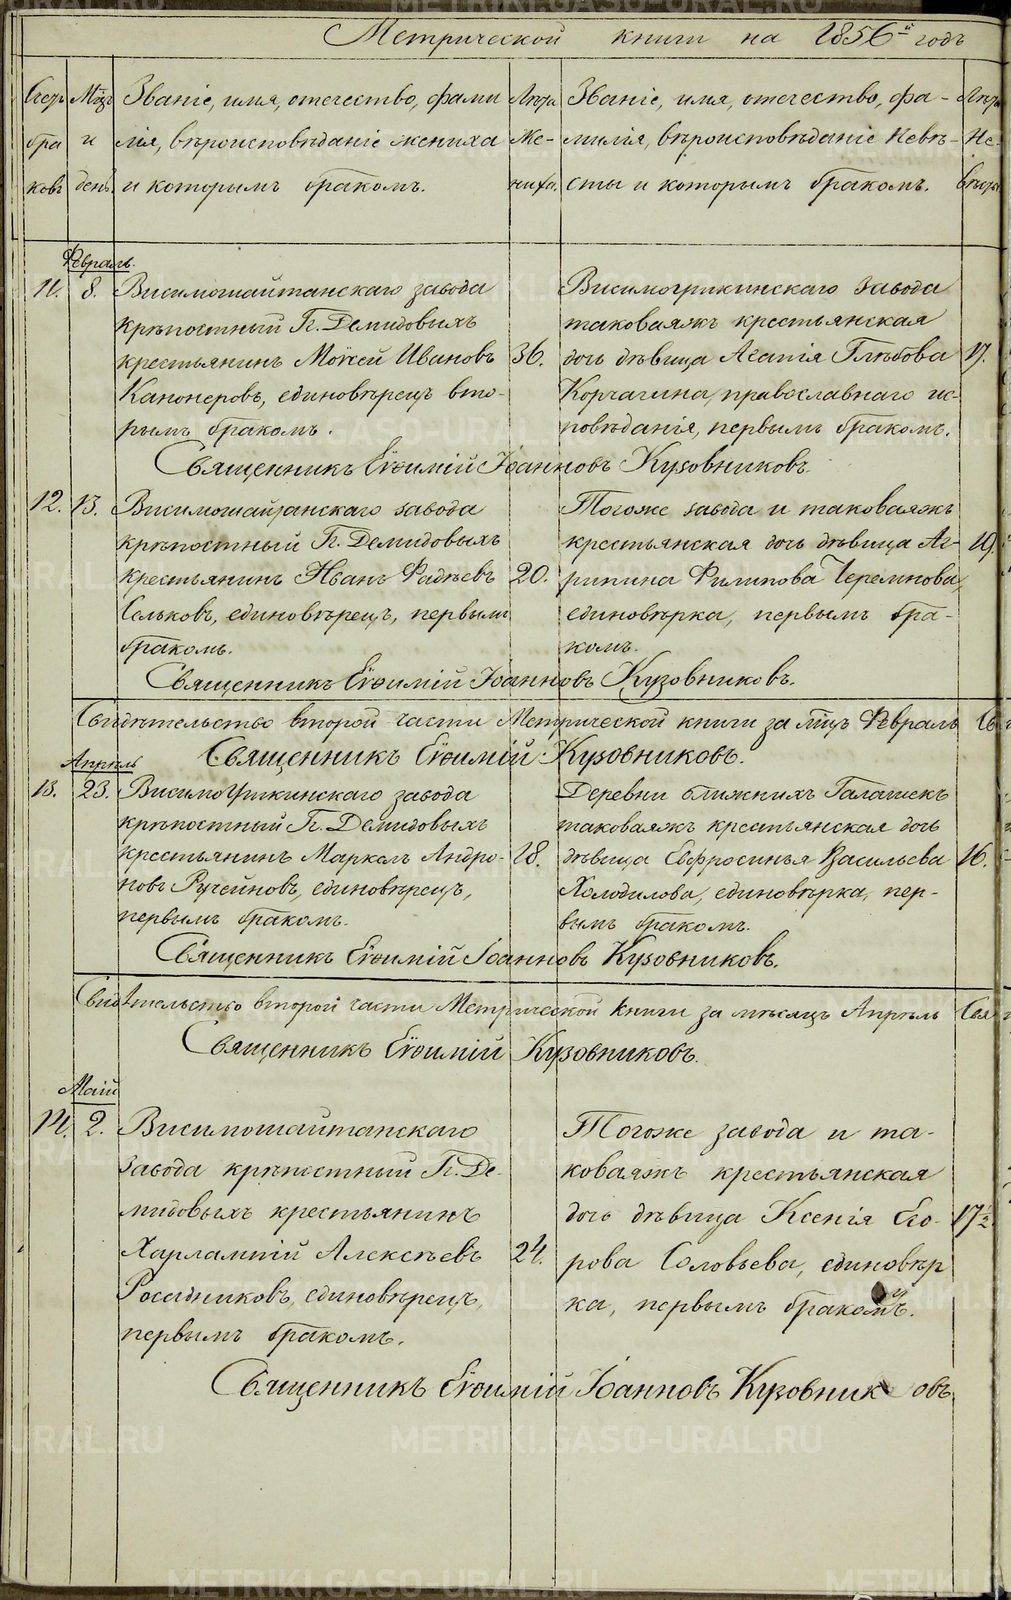 Метрической книги на 1856й годъ
Счетъ браковъ
Мцъ и день.
Званіе, имя, отечество, фами
лія, вѣроисповѣданіе жениха
и которымъ бракомъ.
Лѣта Же-
ниха.
Званіе, имя, отечество, фа-
милія, вѣроисповѣданіе невѣ-
сты и которымъ бракомъ.
Лѣта Не-
вѣсты
Февраль.
11. 8. Висимошайтанскаго завода
крѣпостный Гг. Демидовыхъ
крестьянинъ Моѵсей Ивановъ 36.
Канонеровъ, единовѣрецъ вто-
рымъ бракомъ.
Висимоуткинскаго завода
таковаяжъ крестьянская
дочь дѣвица Агапія Глѣбова 17.
Корчагина, православнаго ис-
повѣданія, первымъ бракомъ.
Священникъ Евѳимій Іоанновъ Кузовниковъ.
12. 13. Висимошайтанскаго завода
крѣпостный Гг. Демидовыхъ
крестьянинъ Иванъ Фадѣевъ 20.
Сольковъ, единовѣрецъ, первымъ
бракомъ.
Тогоже завода и таковаяжъ
крестьянская дочь дѣвица Аг- 19.
рипина Филипова Черемнова,
единовѣрка, первымъ бра-
комъ.
Священникъ Евѳимій Іоанновъ Кузовниковъ.
Свидѣтельство второй части Метрической книги за мцъ Февраль
Священникъ Евѳимій Кузовниковъ.
Апрѣль
13. 23. Висимоуткинскаго завода
крѣпостный Гг. Демидовыхъ
крестьянинъ Маркелъ Андро- 18.
новъ Ручейновъ, единовѣрецъ,
первымъ бракомъ.
Деревни ближнихъ Галашекъ
таковаяжъ крестьянская дочь
дѣвица Евфросинья Васильева 16.
Холодилова, единовѣрка, пер-
вымъ бракомъ.
Священникъ Евѳимій Іоанновъ Кузовниковъ.
Свидѣтельство второй части Метрической книги за мѣсяцъ Апрѣль
Священникъ Евѳимій Кузовниковъ.
Маій
14. 2. Висимошайтанскаго
завода крѣпостный Гг. Де-
мидовыхъ крестьянинъ
Харлампій Алексѣевъ 24.
Росадниковъ, единовѣрецъ,
первымъ бракомъ.
Тогоже завода и та-
коваяжъ крестьянская
дочь дѣвица Ксенія Его- 17½.
рова Соловьева, единовѣр
ка, первымъ бракомъ.
Священникъ Евѳимій Іоанновъ Кузовниковъ
METRIKI.GASO-URAL.RU